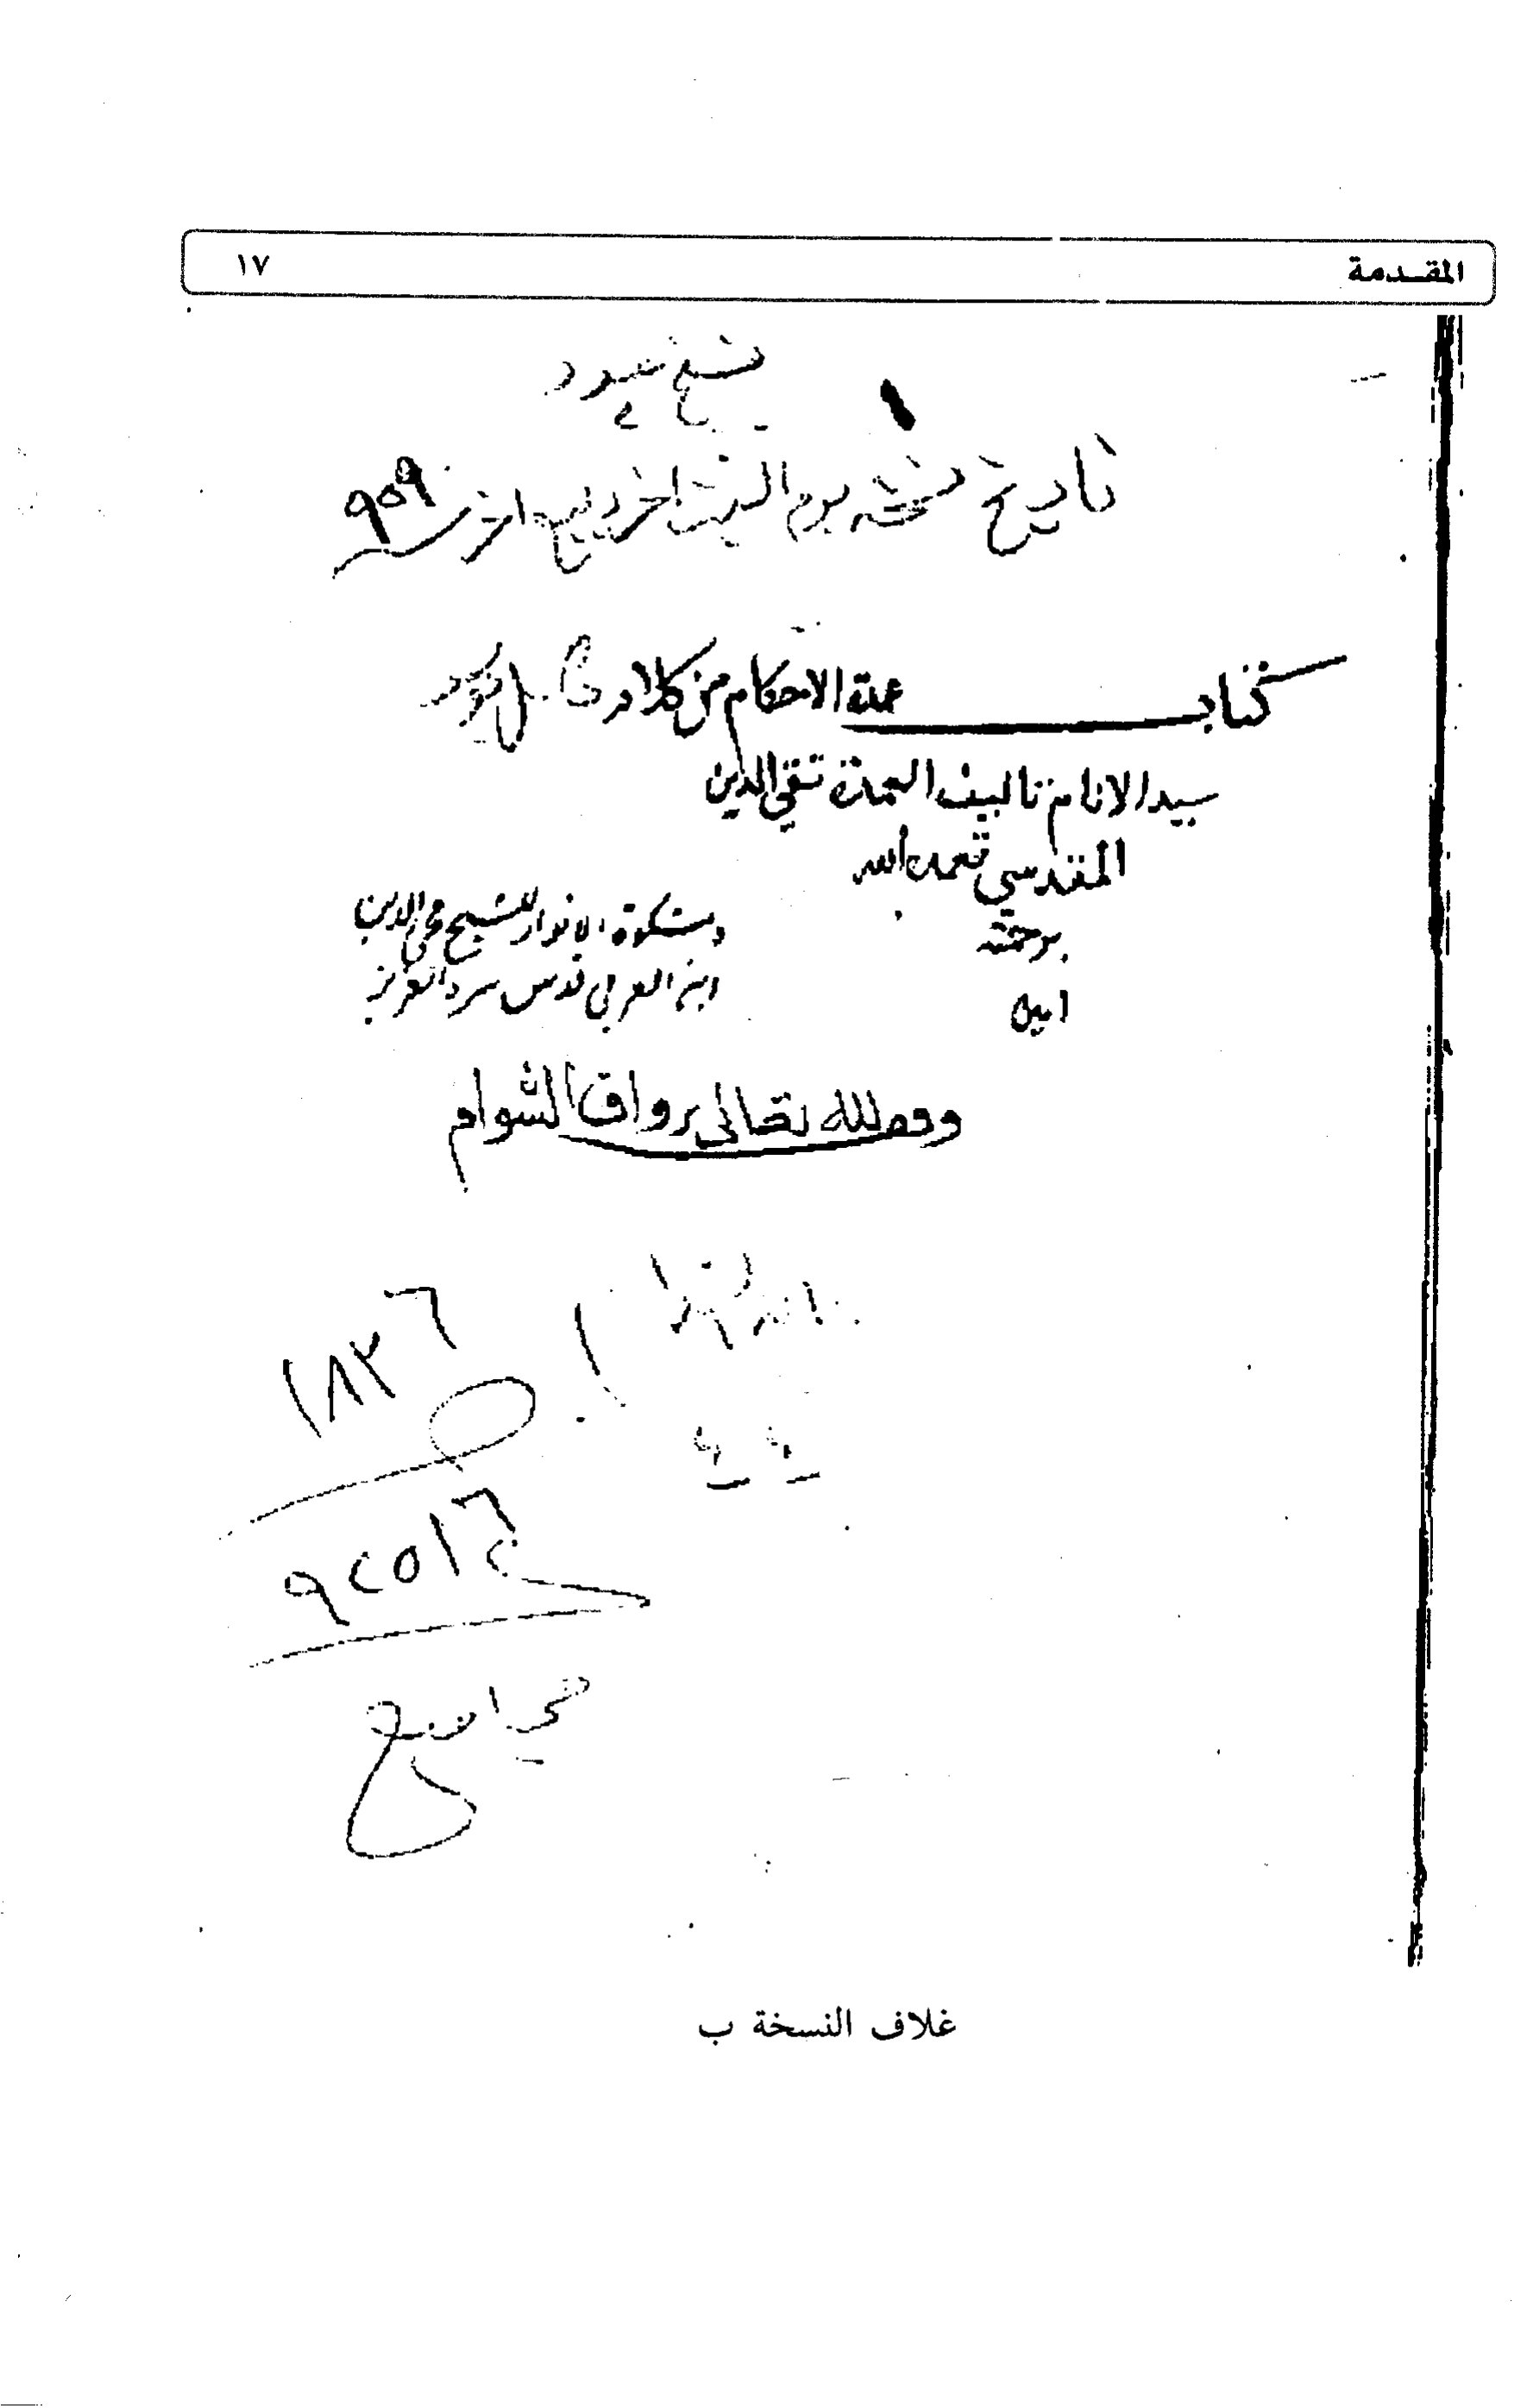 المقدمة ١٧
تاريخ نسخه يوم السبت اخر ربيع اخر سنة ٩٥٩
كتاب عمدة الاحكام من كلام
سيد الانام تاليف العمدة تقي الدين
المقدسي تغمده الله
برحمته
امين
ومشكوة الانوار للشيخ محي الدين
ابن العربي قدس سره العزيز
وقف لله تعالى برواق الشوام
١٨٢٦
٩٢٥١٦
مجاميع
غلاف النسخة ب